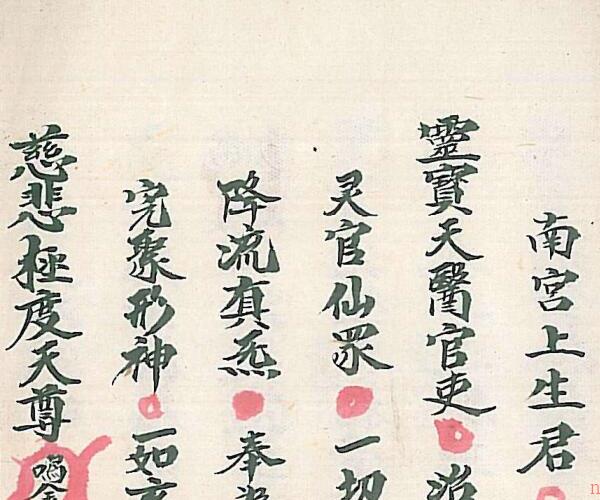 南宮上生君
靈寶天醫官吏 治
灵官仙眾 一切
降流真炁 奉
完聚形神 一如
慈悲極度天尊 鳴